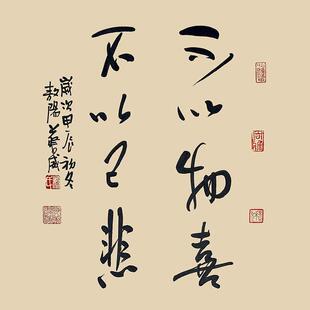 不以物喜
不以己悲
歲次甲辰初冬